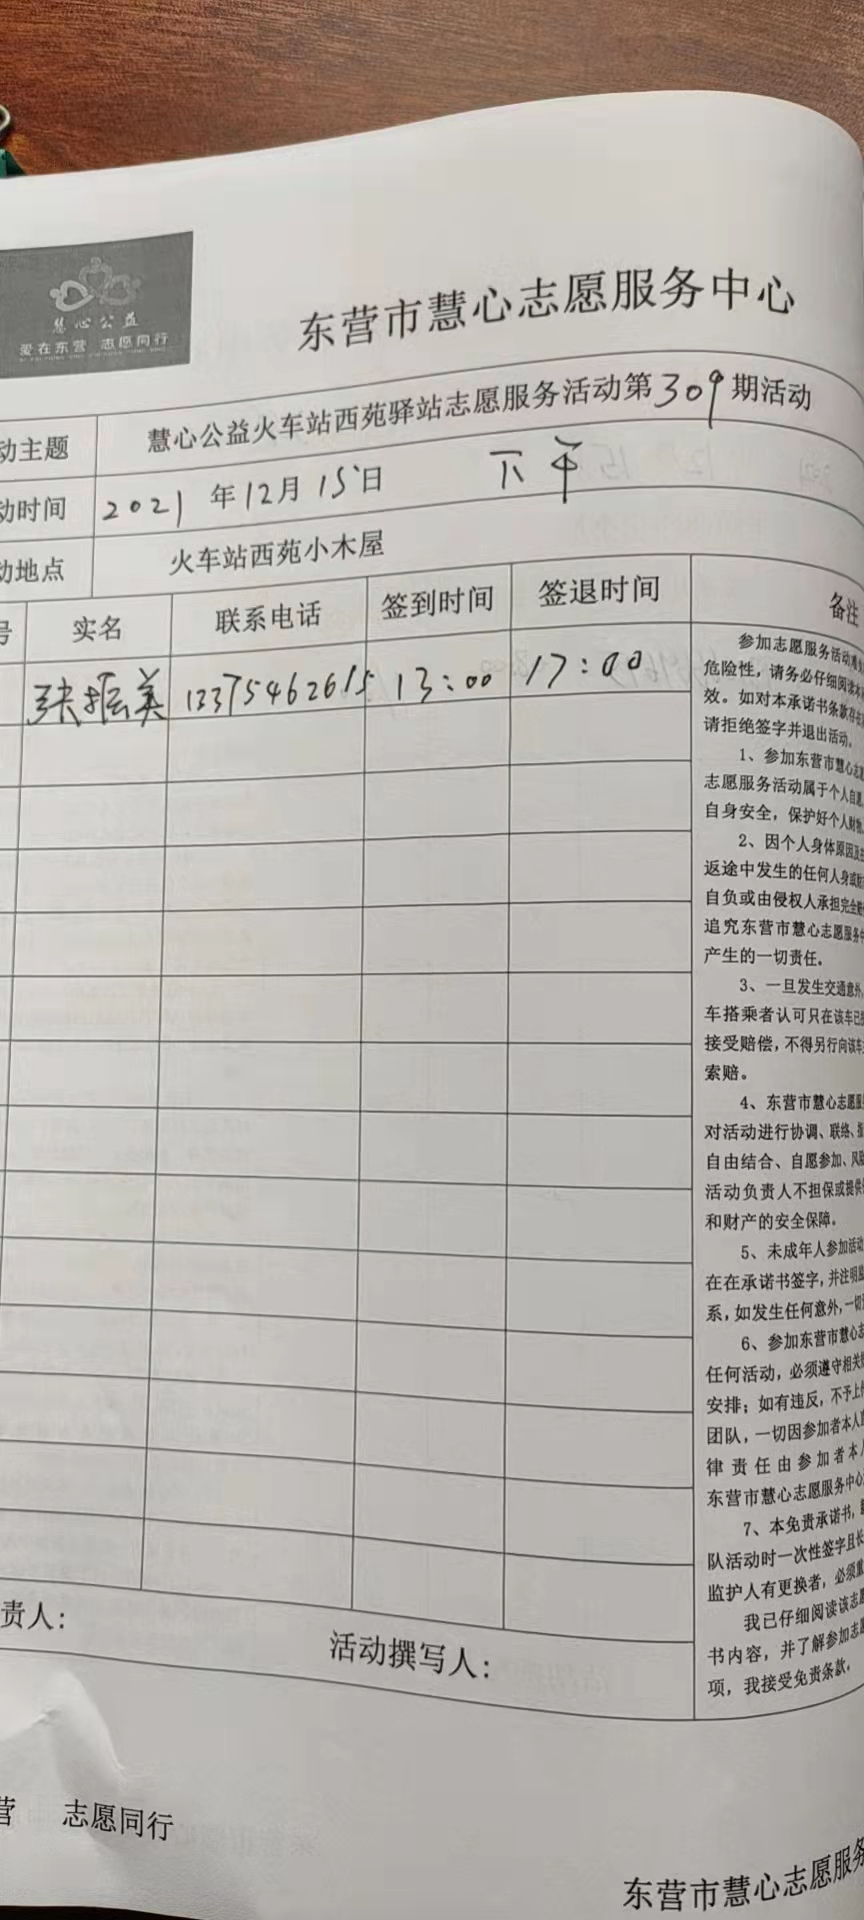 慧心公益
爱在东营 志愿同行
东营市慧心志愿服务中心
动主题 慧心公益火车站西苑驿站志愿服务活动第309期活动
动时间 2021年12月15日 下午
动地点 火车站西苑小木屋
号 实名 联系电话 签到时间 签退时间 备注
张振美 12375462615 13:00 17:00
参加志愿服务活动
危险性，请务必仔细阅读本
效。如对本承诺书条款存在
请拒绝签字并退出活动。
1、参加东营市慧心志愿
志愿服务活动属于个人自愿
自身安全，保护好个人财物
2、因个人身体原因及
返途中发生的任何人身或
自负或由侵权人承担完全
追究东营市慧心志愿服务中
产生的一切责任。
3、一旦发生交通意外，
车搭乘者认可只在该车已
接受赔偿，不得另行向该车
索赔。
4、东营市慧心志愿服
对活动进行协调、联络、
自由结合、自愿参加、风
活动负责人不担保或提供
和财产的安全保障。
5、未成年人参加活动
在在承诺书签字，并注明
系，如发生任何意外，一切
6、参加东营市慧心志
任何活动，必须遵守相关
安排；如有违反，不予上
团队，一切因参加者本人
律责任由参加者本人
东营市慧心志愿服务中心
7、本免责承诺书，
队活动时一次性签字且长
监护人有更换者，必须重
我已仔细阅读该志愿
书内容，并了解参加志愿
项，我接受免责条款。
责人： 活动撰写人：
营 志愿同行
东营市慧心志愿服务